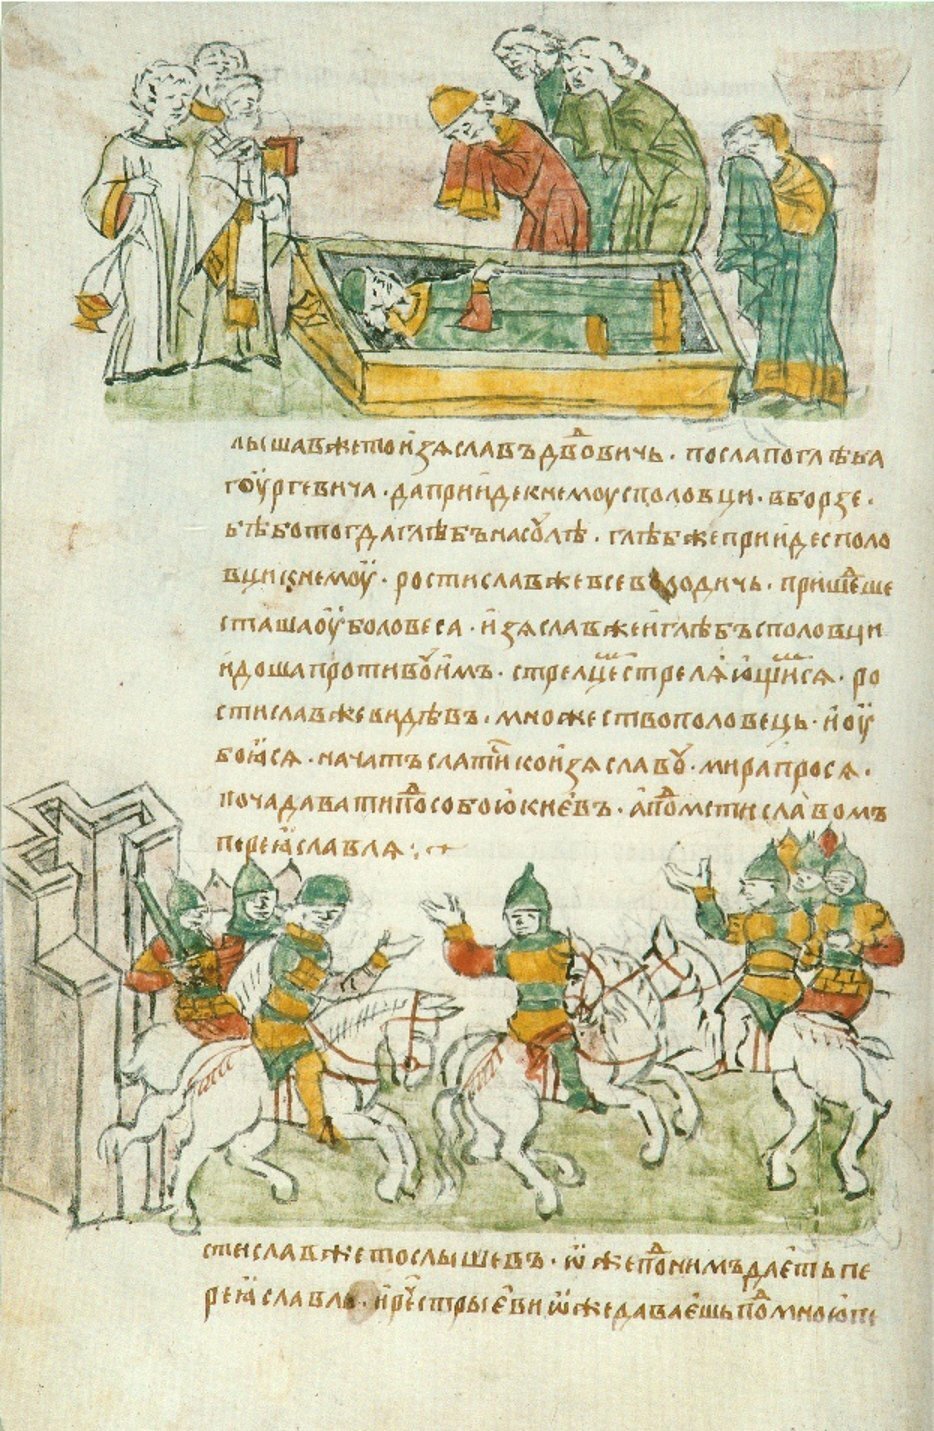 лышавжетоизѧславъдв҃довичь · послапоглѣба
гоурⷢ҇евича · даприидекнемоусполовци · вборзе ·
бѣботогдаглѣбънасулѣ · глѣбжеприидесполо
вцикнемоу · ростиславжевсеволодичь · пришеⷣше
сташаоуболовеса · изѧславжеиглѣбъсполовци
идошапротивуимъ · стрелцемстрелѧющимсѧ · ро
стиславжевидѣвъ · множествополовець · иоу
боꙗсѧ · начатъслатикоизѧславу · мирапросѧ ·
почадаватипоⷣсобоюкиевъ · апоⷣмстиславомъ
переꙗславлѧ :·
стиславжетослышевъ · ѡжепоⷣнимъдаеть пе
реꙗславль · иреⷱ҇стрыевиѡжедаваешьпоⷣмноюпе